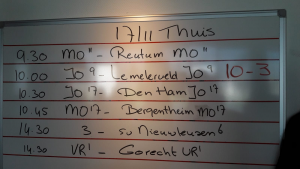 17/11 Thuis
9.30 MO11 - Reutum MO11
10.00 JO9 - Lemelerveld JO9 10-3
10.30 JO17 - Den Ham JO17
10.45 MO17 - Bergentheim MO17
14.30 3 - sv Nieuwleusen 6
14.30 VR1 - Gorecht VR1